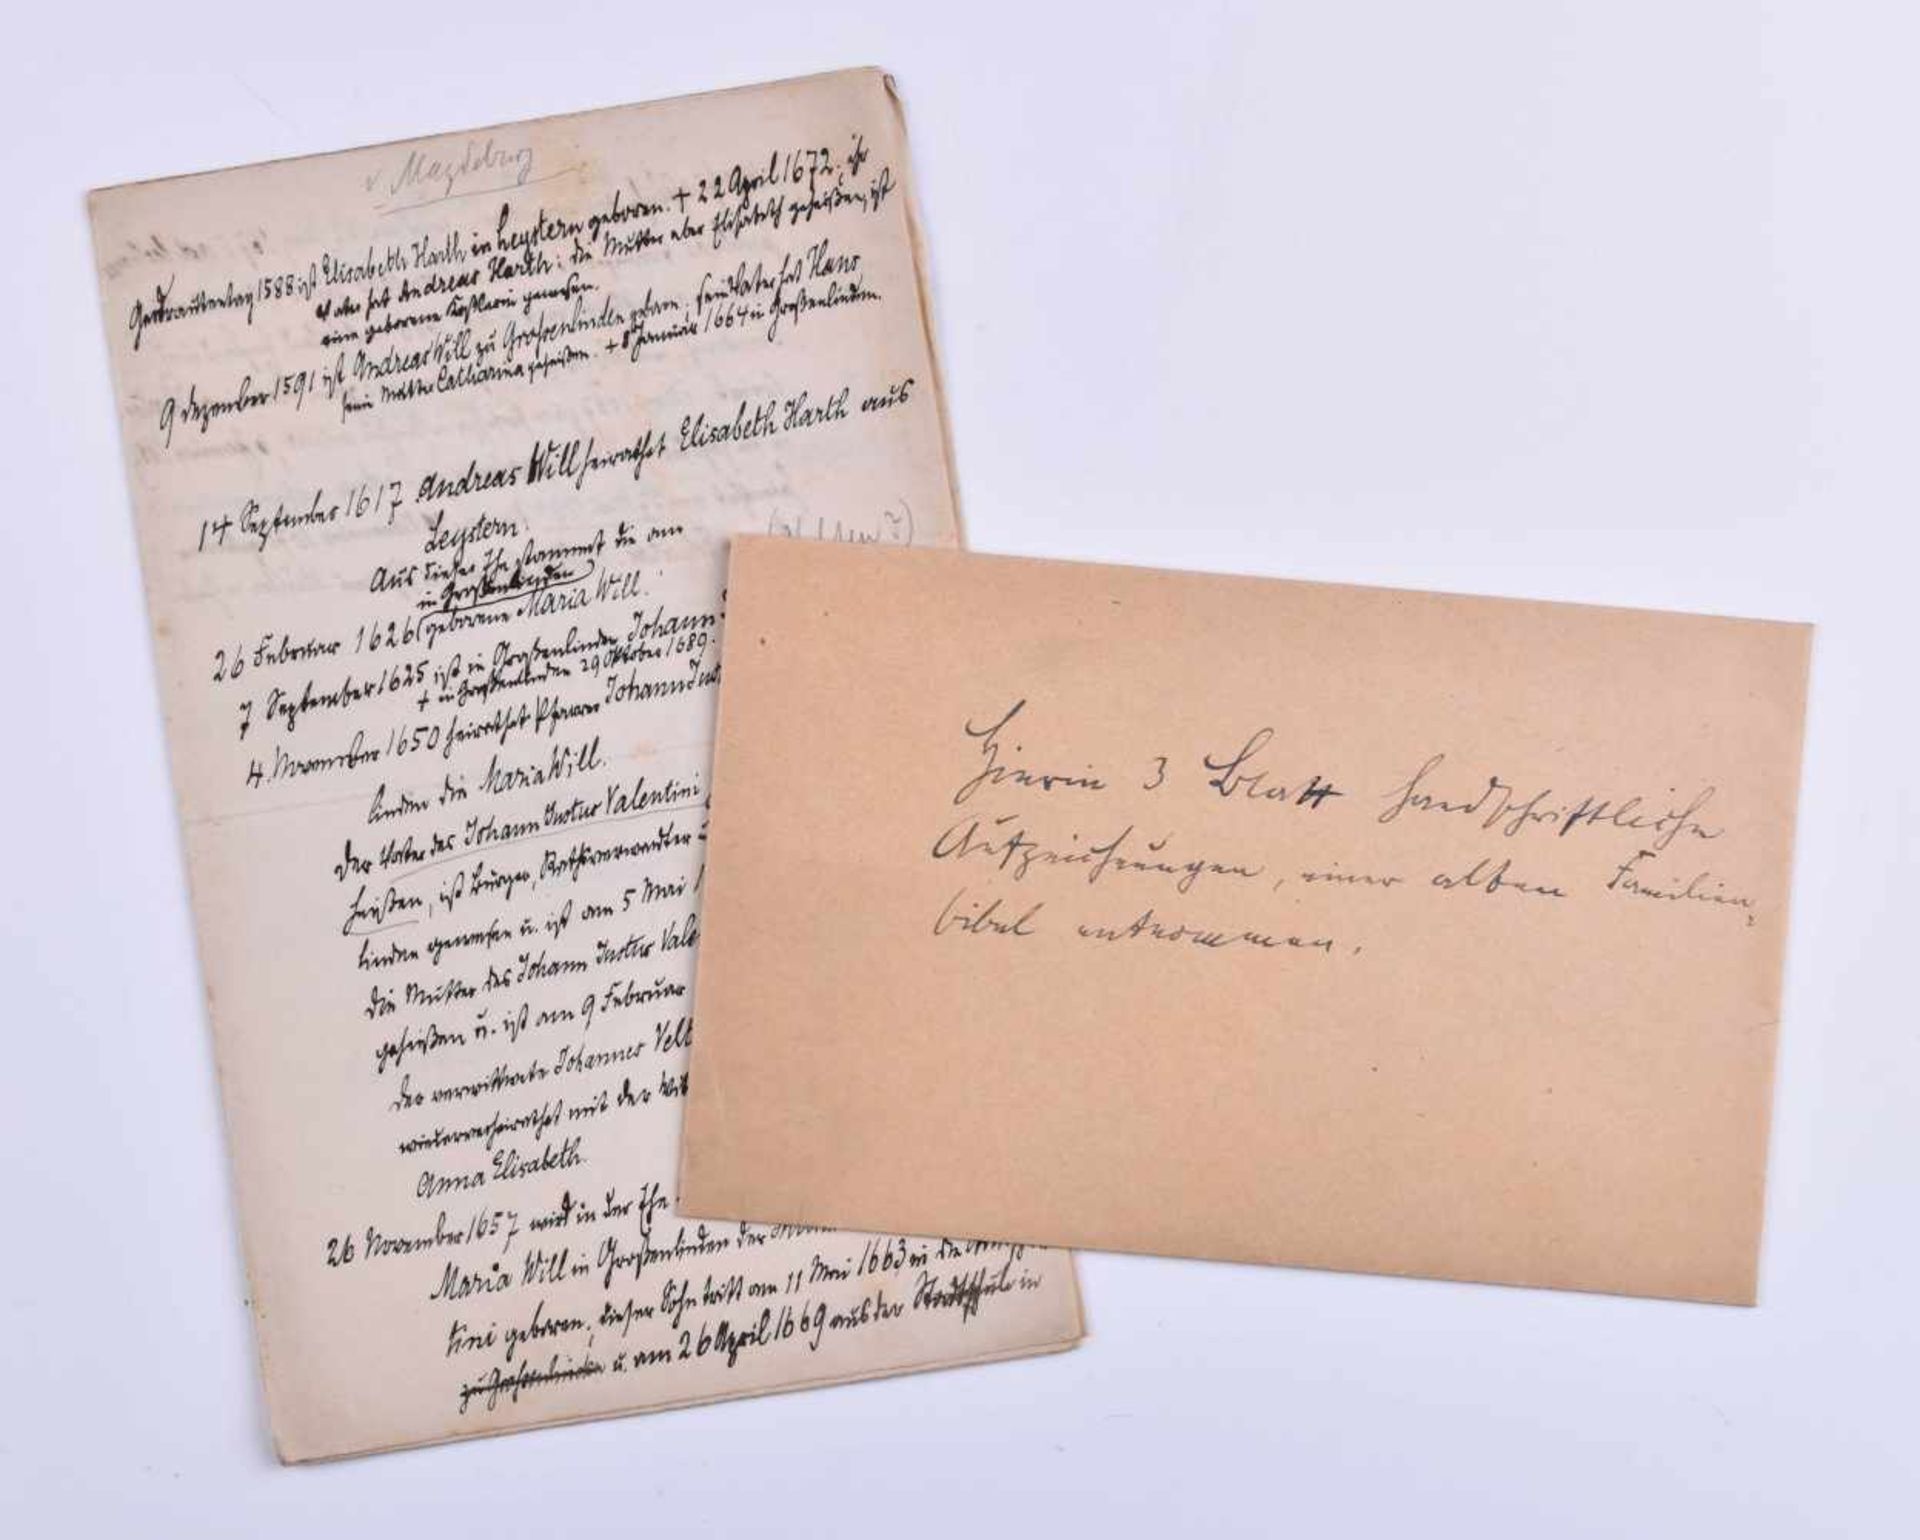 v. Magdeburg
Gertraudentag 1588 ist Elisabeth Harth in Leystern geboren. + 22 April 1672; ihr
Vater hat Andreas Harth; die Mutter aber Elisabeth geheißen, ist
eine geborene gewesen.
9 Dezember 1591 ist Andreas Will zu Großenlinden geboren; sein Vater hat Hans,
seine Mutter Catharina geheißen. + 8 Januar 1664 in Großenlinden.
14 September 1617 Andreas Will heirathet Elisabeth Harth aus
Leystern.
Aus dieser Ehe stammt die am
in Großenlinden
26 Februar 1626 geborene Maria Will.
7 September 1625 ist in Großenlinden Johann
+ in Großenlinden 29 Oktober 1689.
4. November 1650 heirathet Pfarrer Johann Just
linden die Maria Will.
Der Vater des Johann Justus Valentini
heißen, ist Bürger, Rathsverwandter
linden gewesen u. ist am 5 Mai
Die Mutter des Johann Justus Vale
geheißen u. ist am 9 Februar
Der verwittwete Johannes Velt
wiederverheirathet mit der Wit
Anna Elisabeth.
26 November 1657 wird in der Ehe
Maria Will in Großenlinden der
tini geboren; dieser Sohn tritt am 11 Mai 1663 in die
zu Großenlinden u. am 26 April 1669 aus der Stadtschule in
Hierin 3 Blatt handschriftliche
Aufzeichnungen, einer alten Familien-
bibel entnommen.